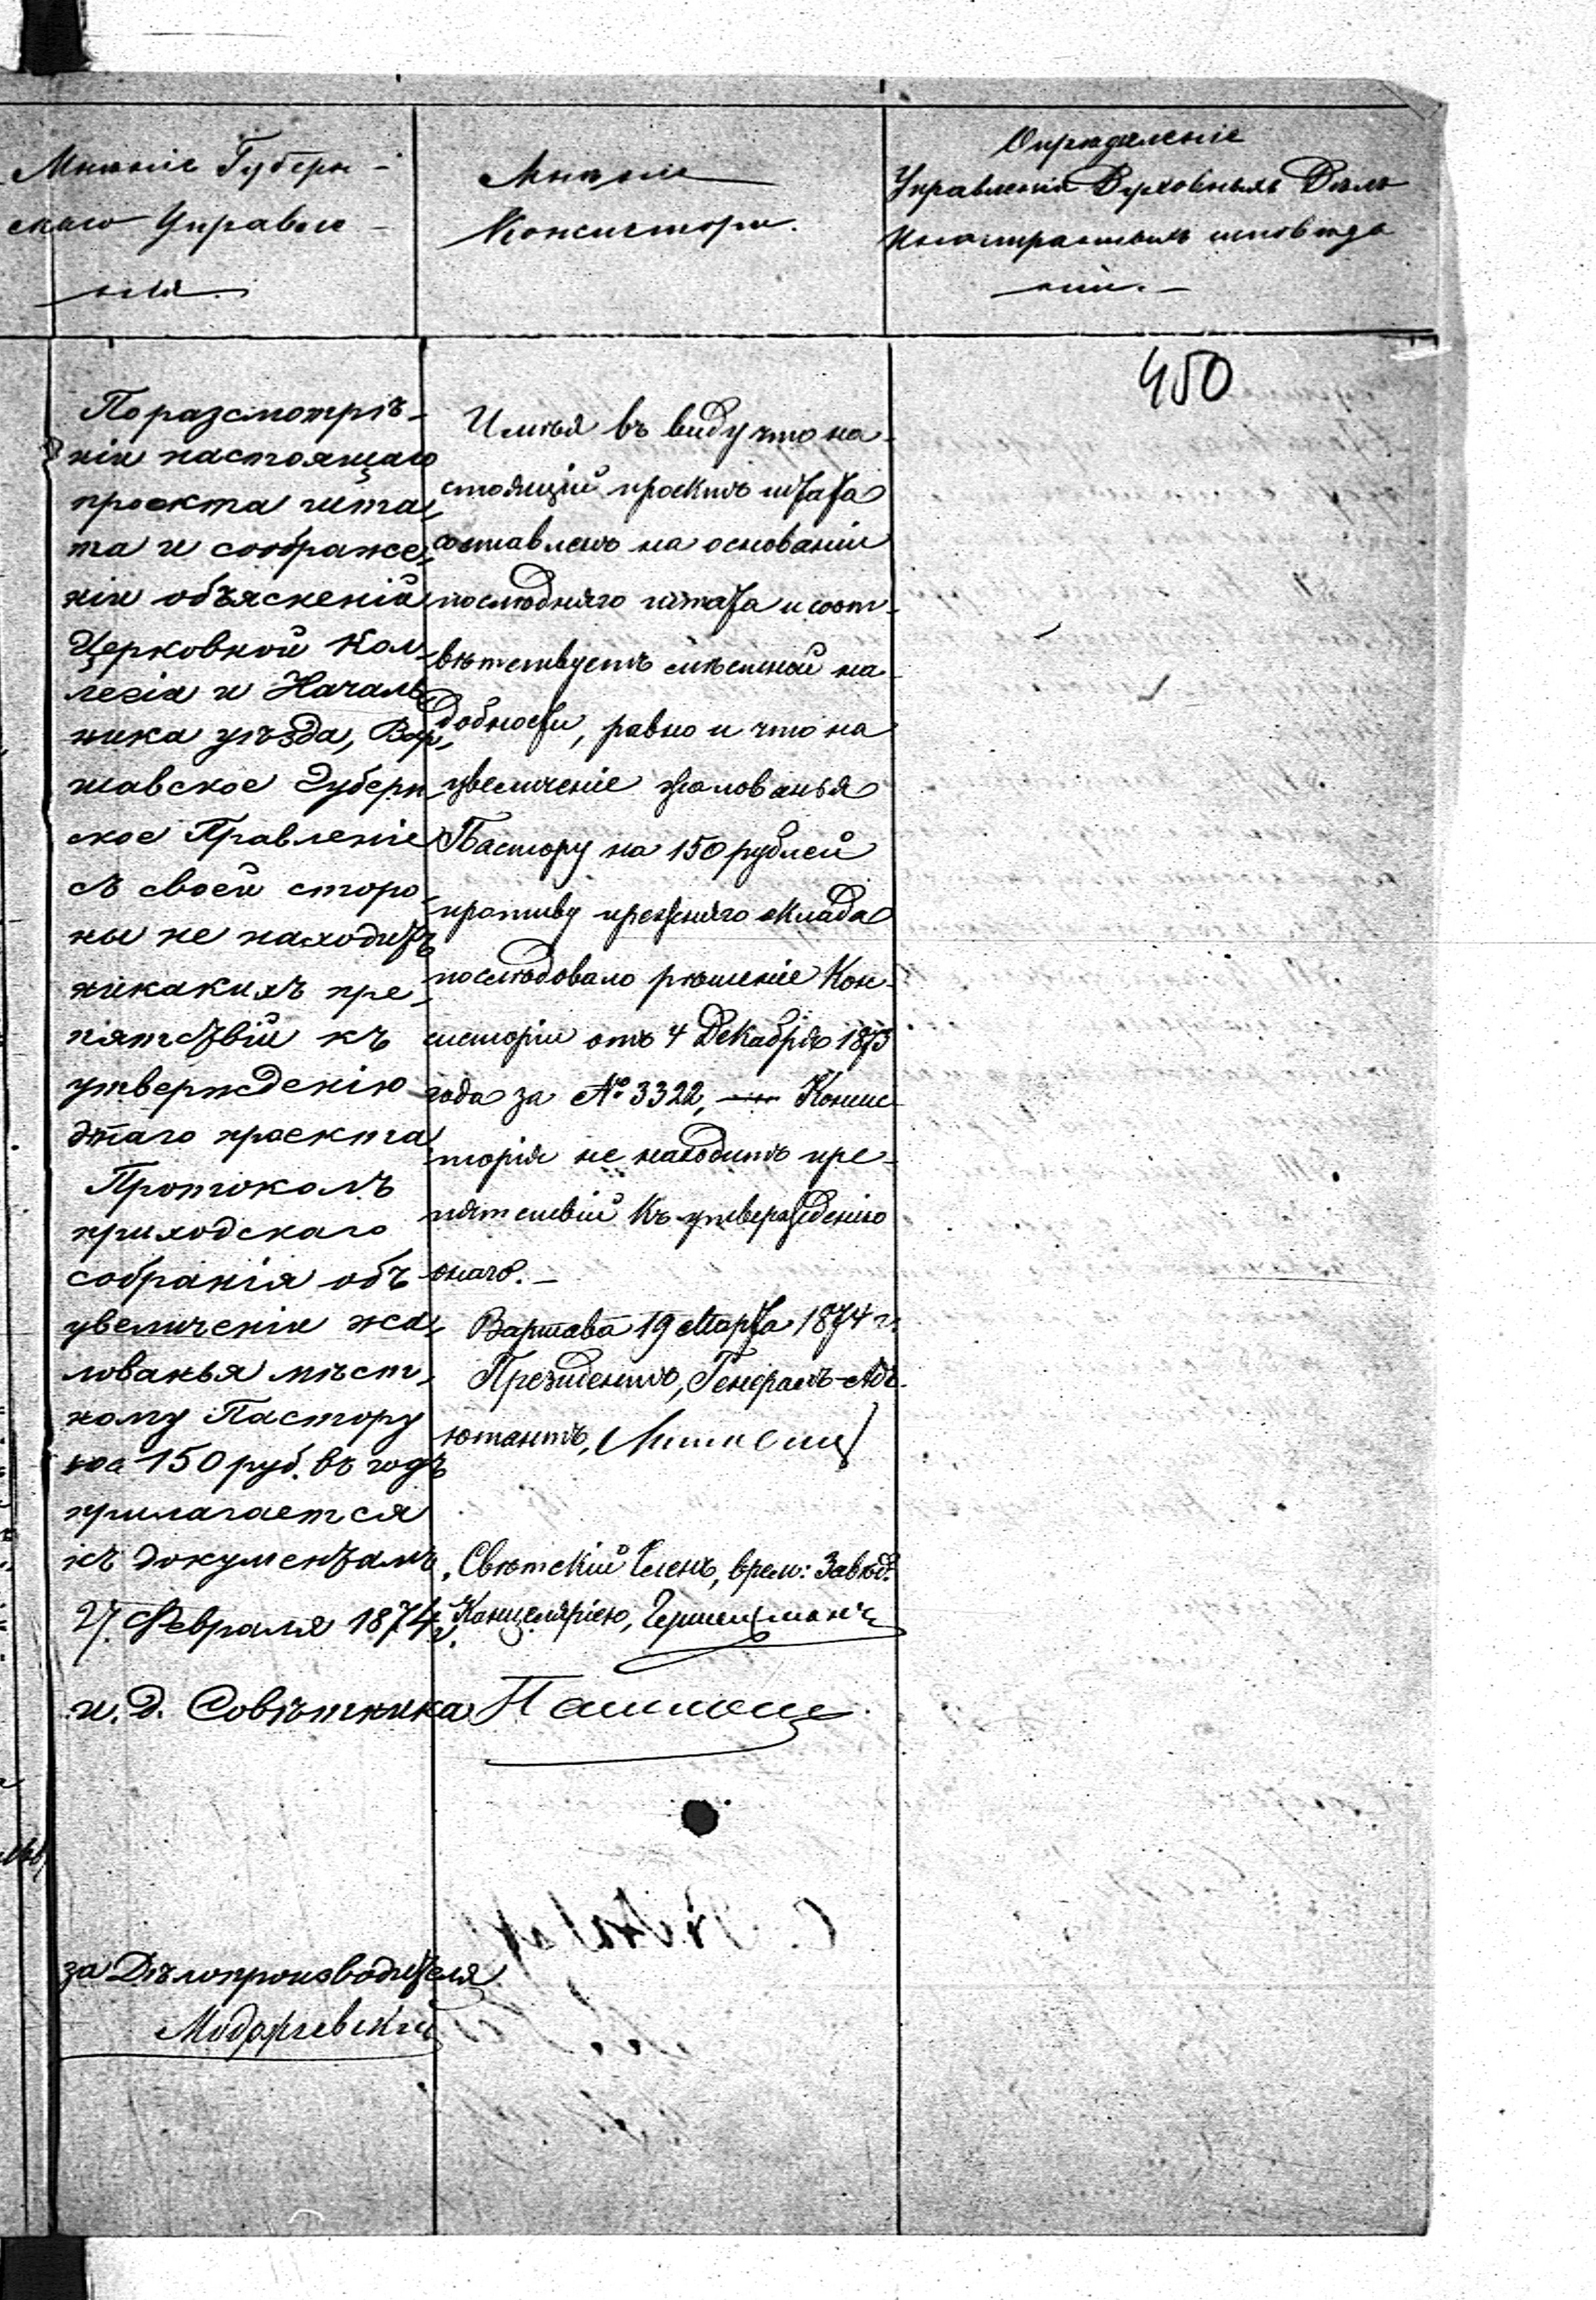 Мнѣніе Губерн-
скаго Управле-
нія.
По разсмотрѣ-
ніи настоящаго
проекта шта-
та и соображе-
ніи объясненій
Церковной Кол-
легіи и Началь-
ника уѣзда, Вар-
шавское Губерн-
ское Правленіе
съ своей сторо-
ны не находитъ
никакихъ пре-
пятствій къ
утвержденію
этаго проекта
Протоколъ
приходскаго
собранія объ
увеличеніи жа-
лованья мѣст-
ному Пастору
на 150 руб. въ годъ
прилагается
къ документамъ.
27 Февраля 1874 г.
и. д. Совѣтника
за Дѣлопроизводителя
Мнѣніе
Консисторіи.
Имѣя въ виду что на-
стоящій проектъ штата
составленъ на основаніи
послѣдняго штата и соот-
вѣтствуетъ мѣстной на-
добности, равно и что на
увеличеніе жалованья
Пастору на 150 рублей
противу прежняго оклада
послѣдовало рѣшеніе Кон-
систоріи отъ 4 Декабря 1873
года за № 3322, Консис-
торія не находитъ пре-
пятствій къ утвержденію
онаго. —
Варшава 19 Марта 1874 г.
Президентъ, Генералъ-Адъ-
ютантъ,
Свѣтскій Членъ, врем: Завѣд.
Канцеляріею,
Опредѣленіе
Управленія Духовныхъ Дѣлъ
Иностранныхъ исповѣда-
ній. —
450